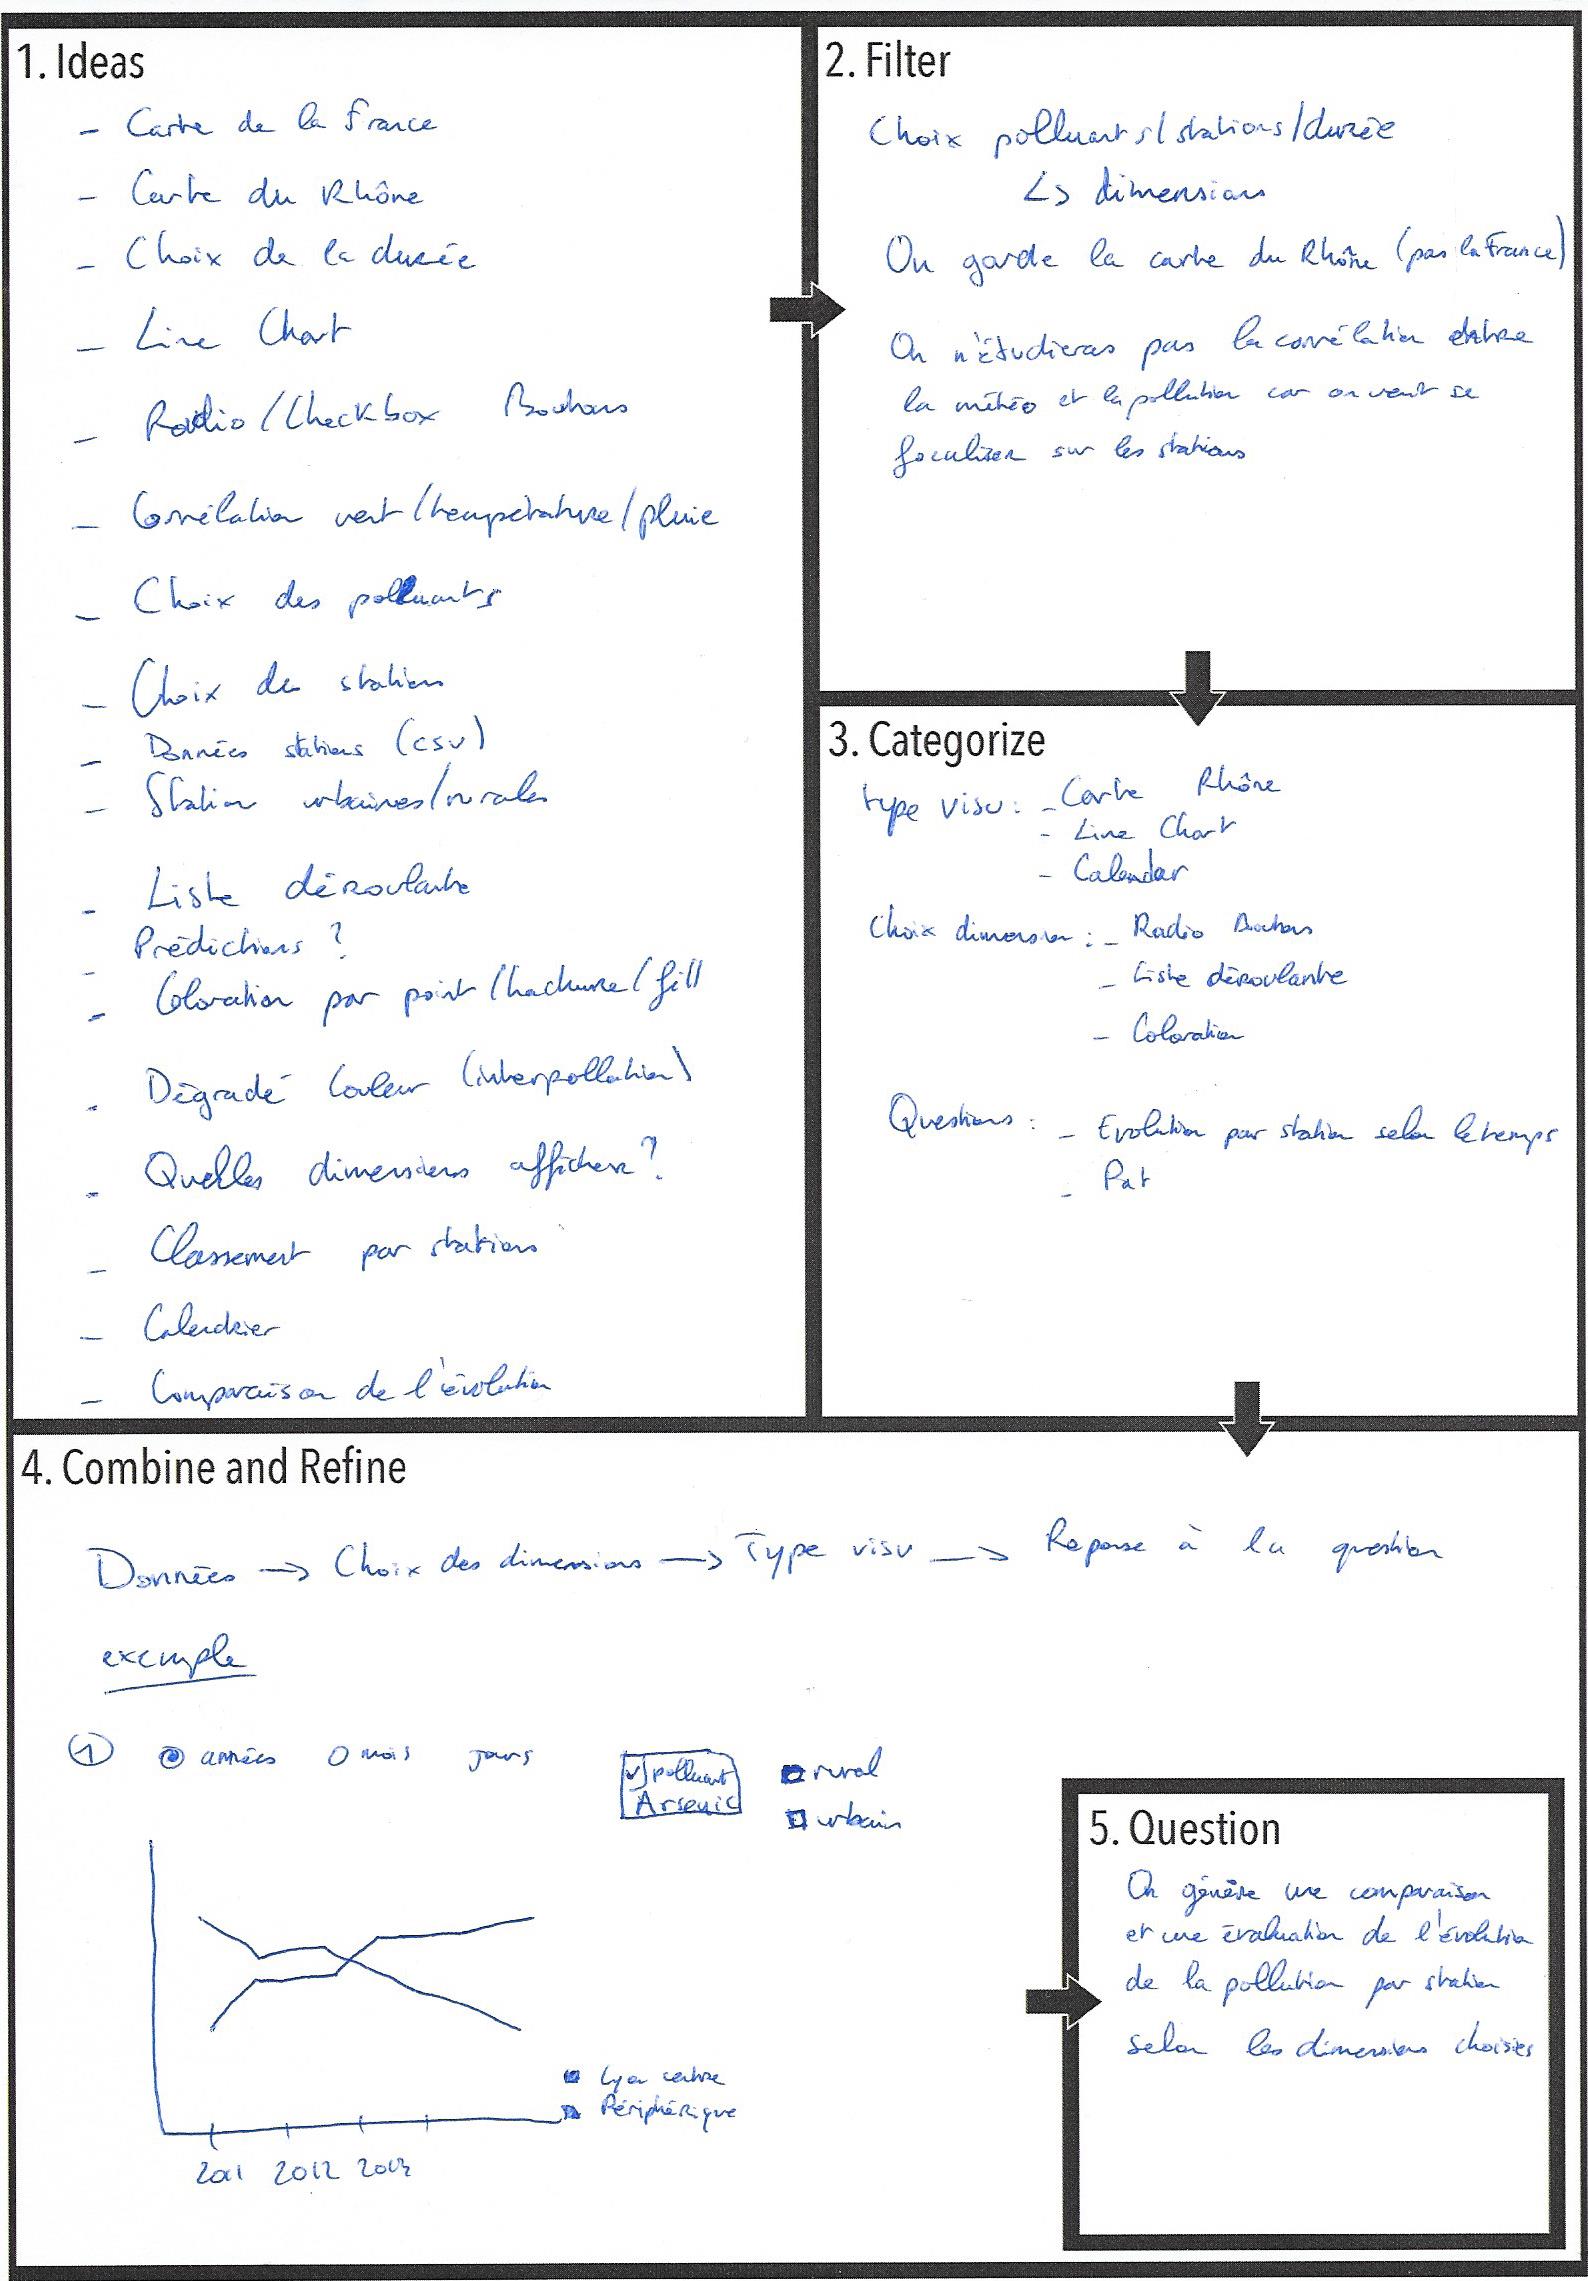 1. Ideas
- Carte de la France
- Carte du Rhône
- Choix de la durée
- Line Chart
- Radio/Checkbox Boutons
- Corrélation vent/température/pluie
- Choix des polluants
- Choix des stations
- Données stations (csv)
- Station urbaines/rurales
- Liste déroulante
- Prédictions ?
- Coloration par point/hachure/fill
- Dégradé Couleur (interpollation)
- Quelles dimensions afficher ?
- Classement par stations
- Calendrier
- Comparaison de l'évolution
2. Filter
Choix polluants/stations/durée
↳ dimensions
On garde la carte du Rhône (pas la France)
On n'étudieras pas la corrélation entre
la météo et la pollution car on veut se
focaliser sur les stations
3. Categorize
type visu : - Carte Rhône
- Line Chart
- Calendar
Choix dimension : - Radio Boutons
- Liste déroulante
- Coloration
Questions : - Evolution par station selon le temps
- Pat
4. Combine and Refine
Données → Choix des dimensions → Type visu → Reponse à la question
exemple
① années mois jours
polluant
Arsenic
rural
urbain
Lyon centre
Périphérique
2011 2012 2013
5. Question
On génère une comparaison
et une évaluation de l'évolution
de la pollution par station
selon les dimensions choisies